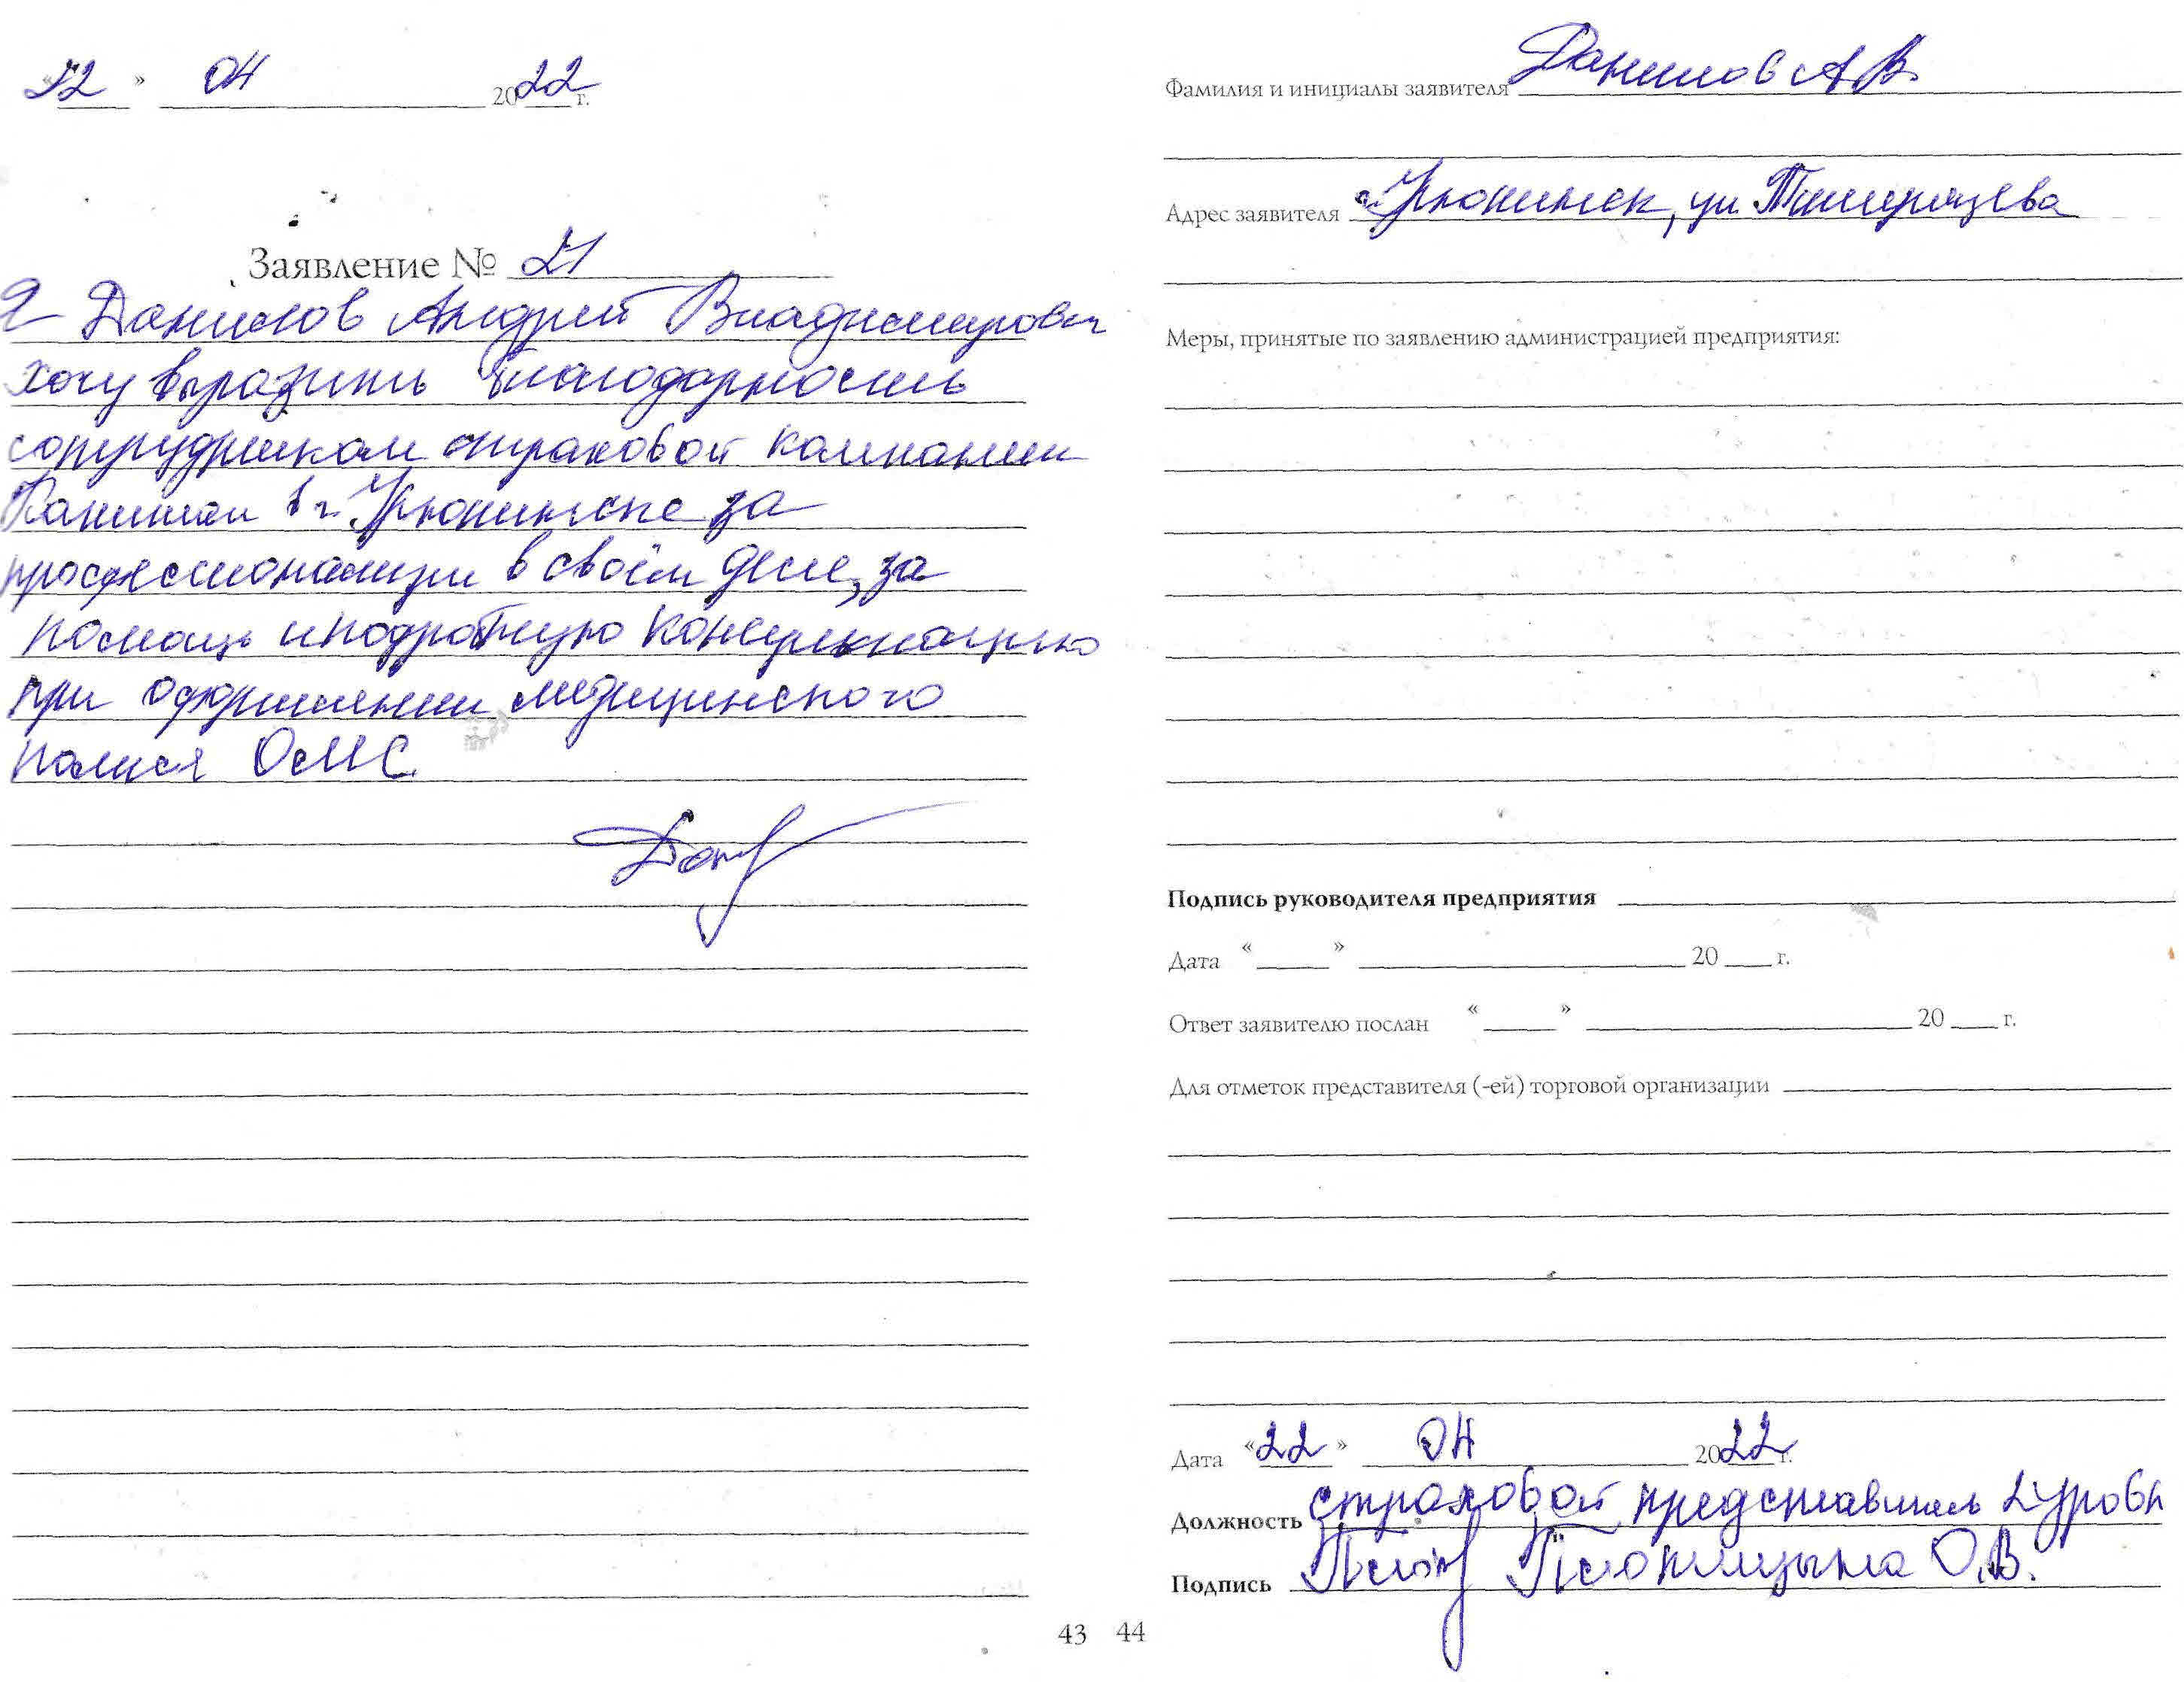 «22» 04 2022 г.
Заявление № 21
Я Данилов Андрей Владимирович
хочу выразить благодарность
сотрудникам страховой компании
в г. Урюпинске за
профессионализм в своём деле, за
помощь и подробную консультацию
при оформлении медицинского
полиса ОМС.
43
Фамилия и инициалы заявителя Данилов А.В.
Адрес заявителя г. Урюпинск, ул. Тимирязева
Меры, принятые по заявлению администрацией предприятия:
Подпись руководителя предприятия
Дата « » 20 г.
Ответ заявителю послан « » 20 г.
Для отметок представителя (-ей) торговой организации
Дата «22» 04 2022 г.
Должность страховой представитель 2 уровня
Подпись О.В.
44